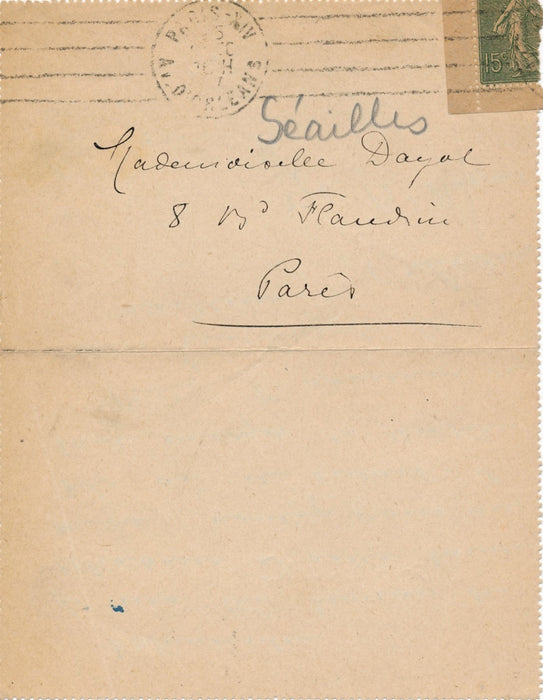 PARIS XIV
AV. D'ORLEANS
15c
Séailles
Mademoiselle Dayot
8 Bd Flandrin
Paris